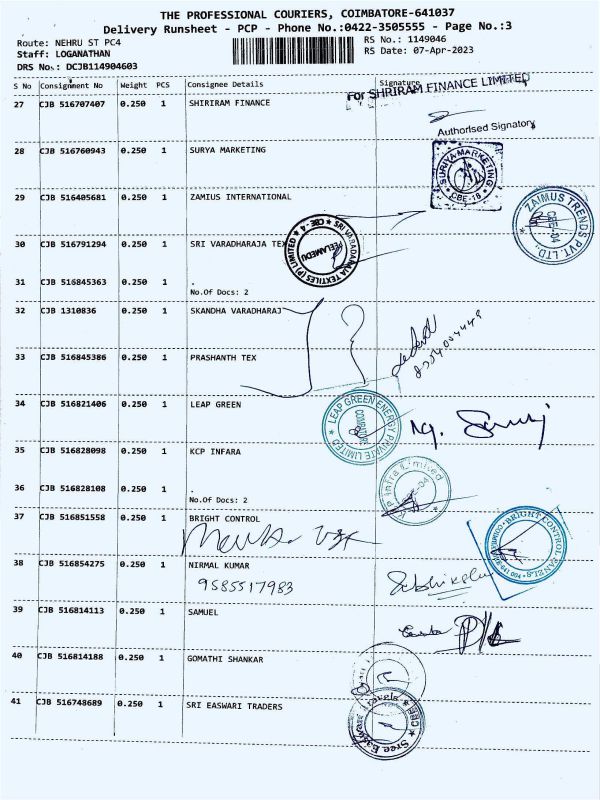 THE PROFESSIONAL COURIERS, COIMBATORE-641037
Delivery Runsheet - PCP - Phone No.:0422-3505555 - Page No.:3
Route: NEHRU ST PC4
RS No.: 1149046
Staff: LOGANATHAN
RS Date: 07-Apr-2023
DRS No.: DCJB114904603
S No Consignment No Weight PCS Consignee Details Signature
For SHRIRAM FINANCE LIMITED
27 CJB 516707407 0.250 1 SHIRIRAM FINANCE
Authorised Signatory
28 CJB 516760943 0.250 1 SURYA MARKETING
SURIYA MARKETING
CBE-18
29 CJB 516405681 0.250 1 ZAMIUS INTERNATIONAL
ZAIMUS TRENDS PVT. LTD.,
CBE-04
30 CJB 516791294 0.250 1 SRI VARADHARAJA TEX
SRI VARADARAJA TEXTILES (P) LIMITED
CBE-4
PEELAMEDU
31 CJB 516845363 0.250 1 .
No.Of Docs: 2
32 CJB 1310836 0.250 1 SKANDHA VARADHARAJ
33 CJB 516845386 0.250 1 PRASHANTH TEX
34 CJB 516821406 0.250 1 LEAP GREEN
LEAP GREEN ENERGY PRIVATE LIMITED
35 CJB 516828098 0.250 1 KCP INFARA
36 CJB 516828108 0.250 1 .
No.Of Docs: 2
37 CJB 516851558 0.250 1 BRIGHT CONTROL
BRIGHT CONTROL PANELS
38 CJB 516854275 0.250 1 NIRMAL KUMAR
9585517983
39 CJB 516814113 0.250 1 SAMUEL
40 CJB 516814188 0.250 1 GOMATHI SHANKAR
41 CJB 516748689 0.250 1 SRI EASWARI TRADERS